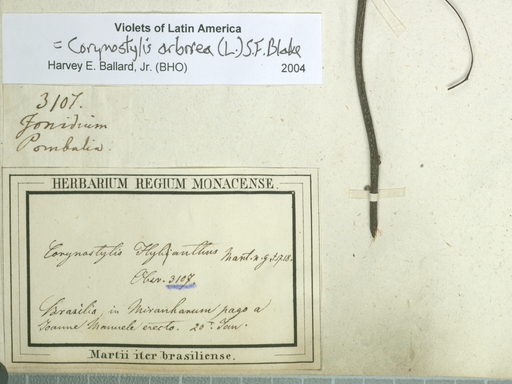 Violets of Latin America
= Corynostylis arborea (L.) S.F. Blake
Harvey E. Ballard, Jr. (BHO)
2004
3107.
Jonidium
Pombalia.
HERBARIUM REGIUM MONACENSE.
Corynostylis Hybanthus Mart. n. g. I. p.
Obser. 3107
Brasilia, in Miranhanum pago a
Joanne Manuele erecto. 20. Jan.
Martii iter brasiliense.